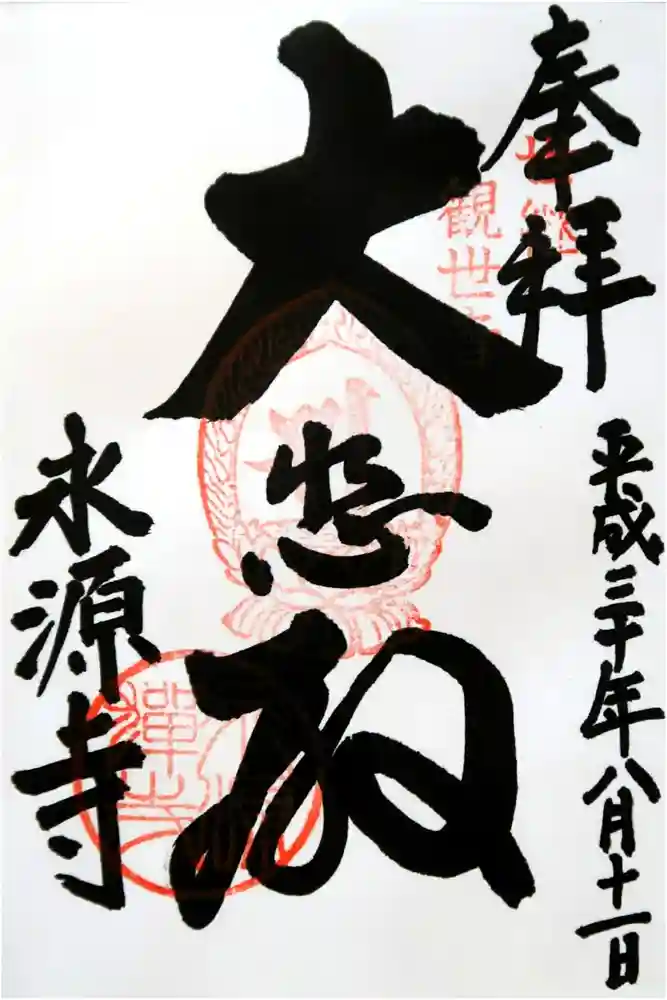 奉拝
平成三十年八月十一日
世継
観世音
大悲殿
永源寺